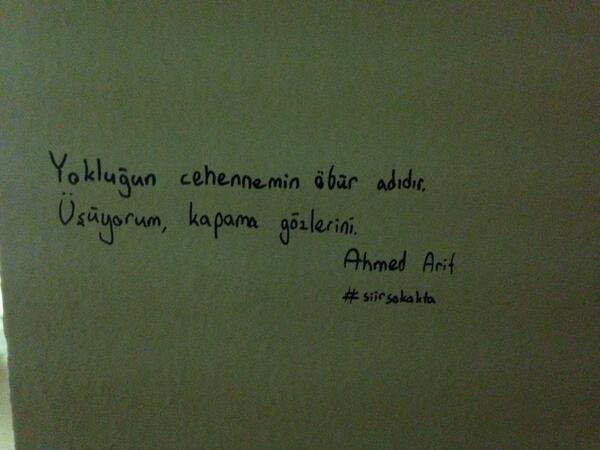 Yokluğun cehennemin öbür adıdır.
Üşüyorum, kapama gözlerini.
Ahmed Arif
#siirsokakta